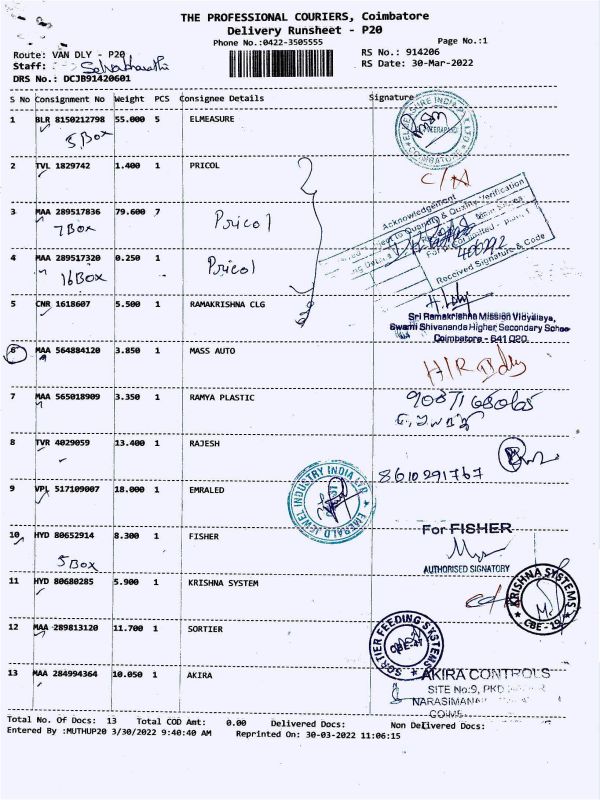 THE PROFESSIONAL COURIERS, Coimbatore
Delivery Runsheet - P20
Phone No.:0422-3505555
Page No.:1
Route: VAN DLY - P20
RS No.: 914206
Staff:
RS Date: 30-Mar-2022
DRS No.: DCJB91420601
S No Consignment No Weight PCS Consignee Details Signature
1 BLR 8150212798 55.000 5 ELMEASURE
5 Box
COIMBATORE
2 TVL 1829742 1.400 1 PRICOL
C/N
Acknowledgement
3 MAA 289517836 79.600 7 Pricol
7 Box
4 MAA 289517320 0.250 1 Pricol
16 Box
Received Signature & Code
5 CNR 1618607 5.500 1 RAMAKRISHNA CLG
Sri Ramakrishna Mission Vidyalaya,
Swami Shivananda Higher Secondary School
Coimbatore - 641 020.
6 MAA 564884120 3.850 1 MASS AUTO
7 MAA 565018909 3.350 1 RAMYA PLASTIC
8 TVR 4029059 13.400 1 RAJESH
8610291767
9 VPL 517109007 18.000 1 EMRALED
EMERALD JEWEL INDUSTRY INDIA LTD
10 HYD 80652914 8.300 1 FISHER
5 Box
For FISHER
AUTHORISED SIGNATORY
11 HYD 80680285 5.900 1 KRISHNA SYSTEM
KRISHNA SYSTEMS
CBE-19
12 MAA 289813120 11.700 1 SORTIER
SORTIER FEEDING SYSTEMS
13 MAA 284994364 10.050 1 AKIRA
AKIRA CONTROLS
SITE No:9, PKD
Total No. Of Docs: 13 Total COD Amt: 0.00 Delivered Docs: Non Delivered Docs:
Entered By :MUTHUP20 3/30/2022 9:40:40 AM Reprinted On: 30-03-2022 11:06:15